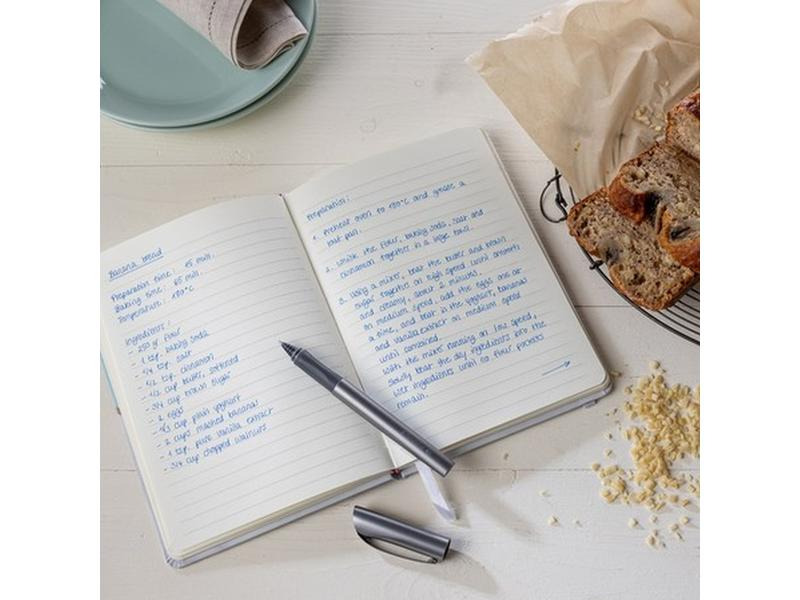 Banana bread
Preparation time: 15 min.
Baking time: 65 min.
Temperature: 180°C
Ingredients:
- 250 gr flour
- 1 tsp. baking soda
- 1/4 tsp. salt
- 1/2 tsp. cinnamon
- 1/2 cup butter, softened
- 3/4 cup brown sugar
- 2 eggs
- 1/3 cup plain yoghurt
- 2 cups mashed bananas
- 1 tsp. pure vanilla extract
- 3/4 cup chopped walnuts
Preparation:
1. Preheat oven to 180°C and grease a
loaf pan.
2. Whisk the flour, baking soda, salt and
cinnamon together in a large bowl.
3. Using a mixer, beat the butter and brown
sugar together on high speed until smooth
and creamy, about 2 minutes.
On medium speed, add the eggs one at
a time, and beat in the yoghurt, bananas
and vanilla extract on medium speed
until combined.
With the mixer running on low speed,
slowly beat the dry ingredients into the
wet ingredients until no flour pockets
remain.